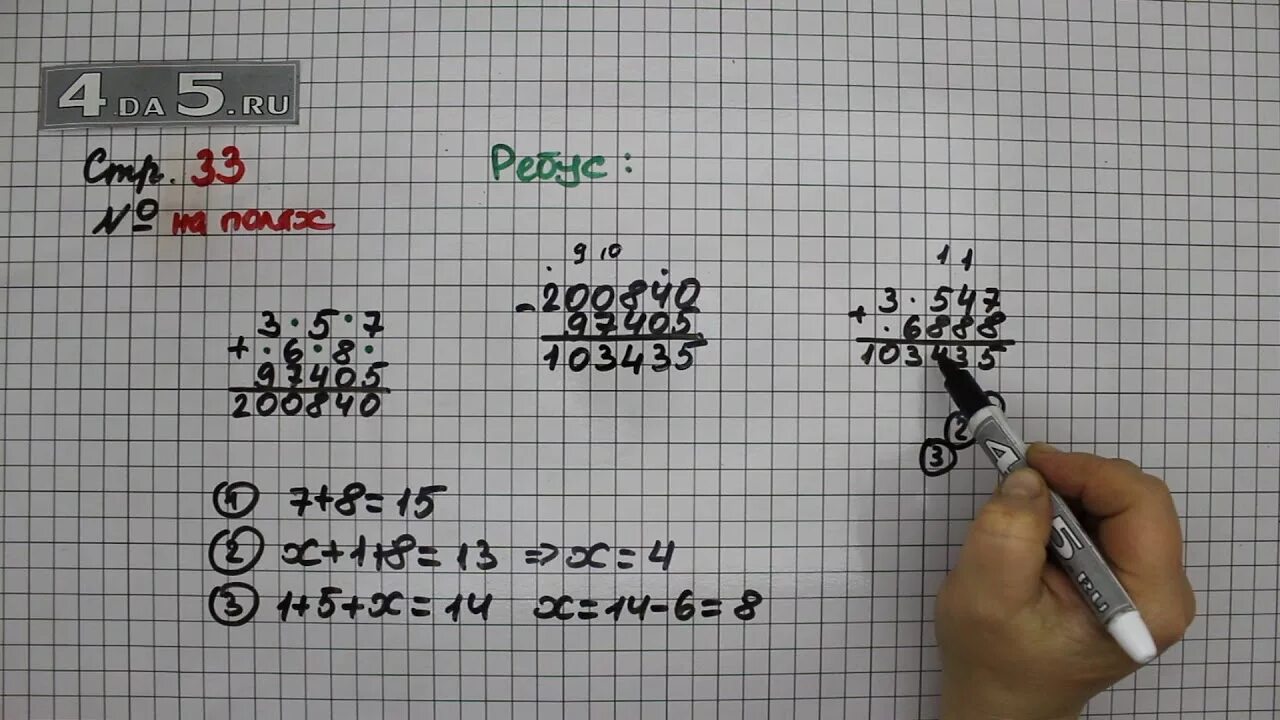 4 DA 5.RU
Стр. 33
№ на полях
Ребус:
3 · 5 · 7
+ · 6 · 8 ·
97405
200840
9 10
- 200840
97405
103435
1 1
+ 3 · 547
· 6888
103435
2
3
① 7+8=15
② x+1+8=13 ⇒ x=4
③ 1+5+x=14 x=14-6=8
4 DA 5 .RU